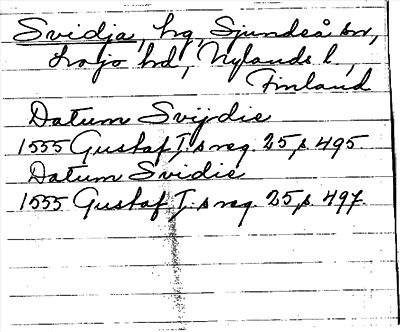 Svidja, hg, Sjundeå sn,
Lojo hd, Nylands l.,
Finland
Datum Svijdie
1555 Gustaf I:s reg. 25, s. 495
Datum Svidie
1555. Gustaf I:s reg. 25, s. 497.